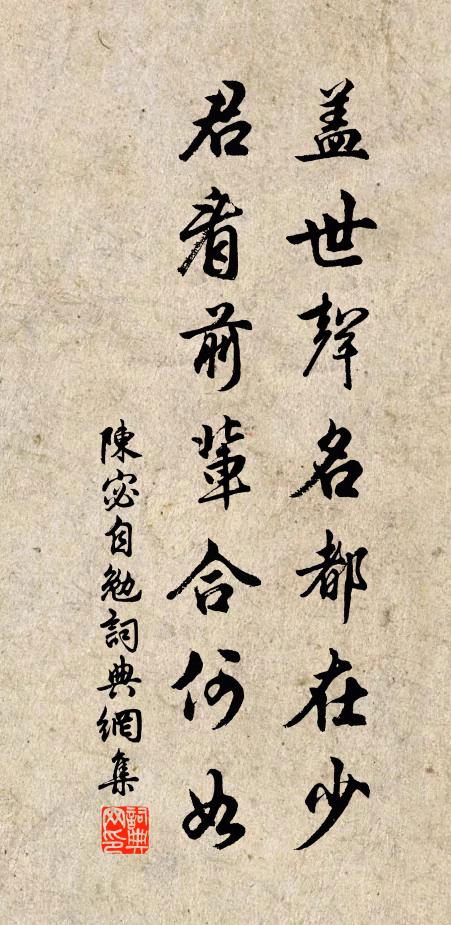 盖世聲名都在少
君看前輩合何如
陳宓自勉詞典網集
詞典網印